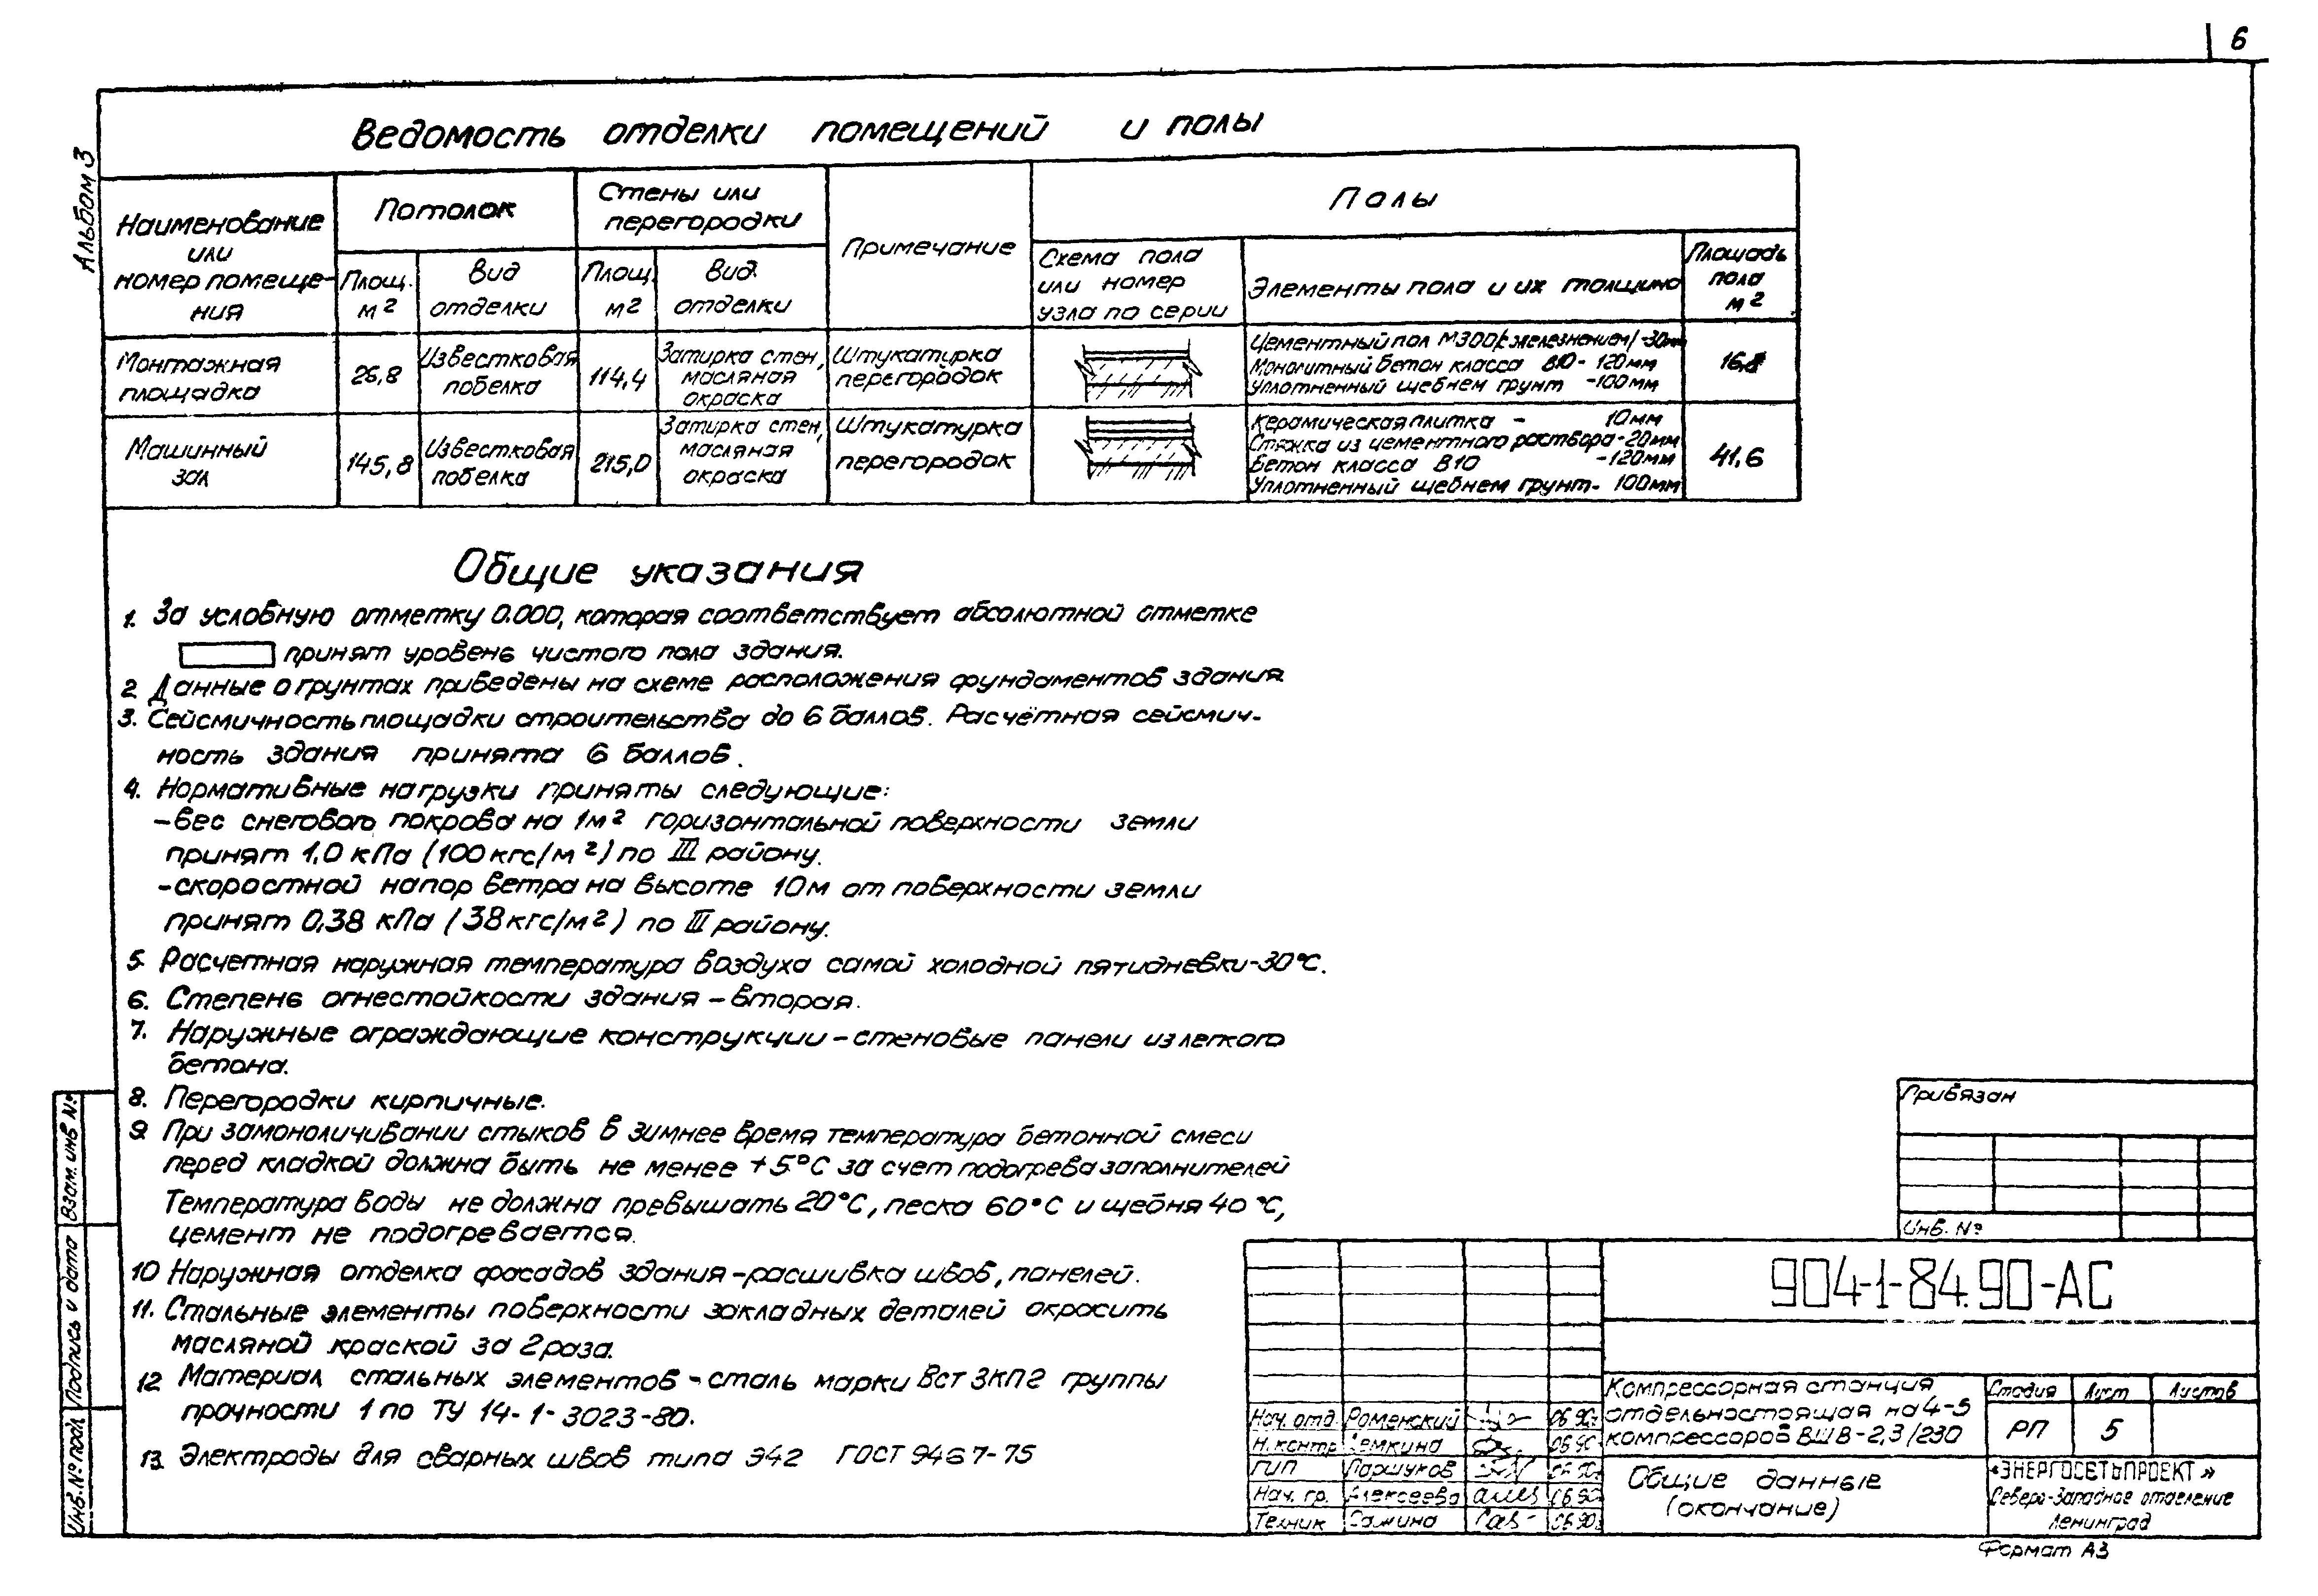 6
Альбом 3
Ведомость отделки помещений и полы
Наименование
или
номер помеще-
ния
Потолок
Стены или
перегородки
Примечание
Полы
Площ.
м2
Вид
отделки
Площ
м2
Вид.
отделки
Схема пола
или номер
узла по серии
Элементы пола и их толщина
Площадь
пола
м2
Монтажная
площадка
26,8
Известковая
побелка
114,4
Затирка стен,
масляная
окраска
Штукатурка
перегородок
Цементный пол М300/с железнением/-30мм
Монолитный бетон класса В10- 120мм
Уплотненный щебнем грунт -100мм
16,8
Машинный
зал
145,8
Известковая
побелка
215,0
Затирка стен,
масляная
окраска
Штукатурка
перегородок
Керамическая плитка - 10мм
Стяжка из цементного раствора-20мм
Бетон класса В10 -120мм
Уплотненный щебнем грунт- 100мм
41,6
Общие указания
1. За условную отметку 0.000, которая соответствует абсолютной отметке
принят уровень чистого пола здания.
2 Данные о грунтах приведены на схеме расположения фундаментов здания
3. Сейсмичность площадки строительства до 6 баллов. Расчётная сейсмич-
ность здания принята 6 баллов.
4. Нормативные нагрузки приняты следующие:
-вес снегового покрова на 1м2 горизонтальной поверхности земли
принят 1,0 кПа (100кгс/м2) по III району.
-скоростной напор ветра на высоте 10м от поверхности земли
принят 0,38 кПа (38кгс/м2) по III району.
5. Расчетная наружная температура воздуха самой холодной пятидневки-30°С.
6. Степень огнестойкости здания - вторая.
7. Наружные ограждающие конструкции - стеновые панели из легкого
бетона.
8. Перегородки кирпичные.
9 При замоноличивании стыков в зимнее время температура бетонной смеси
перед кладкой должна быть не менее +5°С за счет подогрева заполнителей
Температура воды не должна превышать 20°С, песка 60°С и щебня 40°С,
цемент не подогревается.
10 Наружная отделка фасадов здания-расшивка швов, панелей.
11. Стальные элементы поверхности закладных деталей окрасить
масляной краской за 2 раза.
12 Материал стальных элементов - сталь марки Вст 3кп2 группы
прочности 1 по ТУ 14-1-3023-80.
13 Электроды для сварных швов типа Э42 ГОСТ 9467-75
Взам. инв №
Подпись и дата
Инв.№ подл
Привязан
Инв. №
904-1-84.90-АС
Компрессорная станция
отдельностоящая на 4-5
компрессоров ВШВ-2,3/230
Стадия Лист Листов
РП 5
Общие данные
(окончание)
«ЭНЕРГОСЕТЬПРОЕКТ»
Северо-Западное отделение
Ленинград
Нач. отд. Роменский 06.90г
Н. контр Семкина 06.90
ГИП Паршуков 06.90г
Нач. гр. Алексеева 06.90
Техник Сажина 06.90г
Формат А3